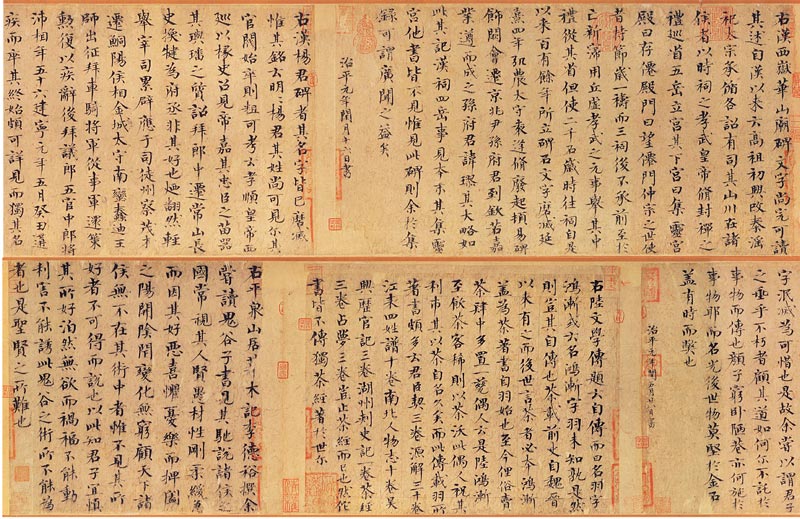 右漢西嶽華山廟碑文字尚完可讀
其述自漢以來云高祖初興改秦淫
祀太宗承循各詔有司其山川在諸
侯者以時祠之孝武皇帝脩封禪之
禮巡省五岳立宮其下宮曰集靈宮
殿曰存僊殿門曰望僊門仲宗之世使
者持節歲一禱而三祠後不承前至於
亡新寖用丘虛孝武之元事舉其中
禮從其省但使二千石歲時往祠自是
以來百有餘年所立碑石文字磨滅延
熹四年弘農太守袁逢脩廢起頓易碑
飾闕會遷京兆尹孫府君到欽若嘉
業遵而成之孫府君諱璆其大略如
此其記漢祠四岳事見本末其集靈
宮他書皆不見惟見此碑則余於集
錄可謂廣聞之益矣
治平元年閏月十六日書
右漢楊君碑者其名字皆已磨滅
惟其銘云明明楊君其姓尚可見尔其
官閥始卒則粗可考云孝順皇帝西
巡以椽史召見帝嘉其忠臣之苗器
其璵璠之質詔拜郎中遷常山長
史換犍為府丞非其好也迺翻然輕
舉宰司累辟應于司徒州察茂才
遷鮦陽侯相金城太守南蠻蠢迪王
師出征拜車騎將軍從事軍還策
勳復以疾辭後拜議郎五官中郎將
沛相年五十六建寧元年五月癸丑遘
疾而卒其終始頗可詳見而獨其名
字泯滅為可惜也是故余嘗以謂君子
之垂乎不朽者顧其道如何尔不託於
事物而傳也顏子窮臥陋巷亦何施於
事物耶而名光後世物莫堅於金石
盖有時而弊也
治平元年閏月日書
右陸文學傳題云自傳而曰名羽字
鴻漸或云名鴻漸字羽未知孰是然
則豈其自傳也茶載前史自魏晉
以來有之而後世言茶者必本鴻漸
盖為茶著書自羽始也至今俚俗賣
茶肆中多置一甆偶人云是陸鴻漸
至飲茶客稀則以茶沃此偶人祝其
利市其以茶自名久矣而此傳載羽所
著書頗多云君臣契三卷源解三十卷
江表四姓譜十卷南北人物志十卷吳
興歷官記三卷湖州刺史記一卷茶經
三卷占夢三卷豈止茶經而已也然佗
書皆不傳獨茶經著於世尔
右平泉山居草木記李德裕撰余
嘗讀鬼谷子書見其馳說諸侯之
國常視其人賢愚材性剛柔緩急
而因其好惡喜懼憂樂而捭闔
之陽開陰閉變化無窮顧天下諸
侯無不在其術中者惟不見其所
好者不可得而說也以此知君子宜慎
其所好泊然無欲而禍福不能動
利害不能誘此鬼谷之術所不能為
者也是聖賢之所難也